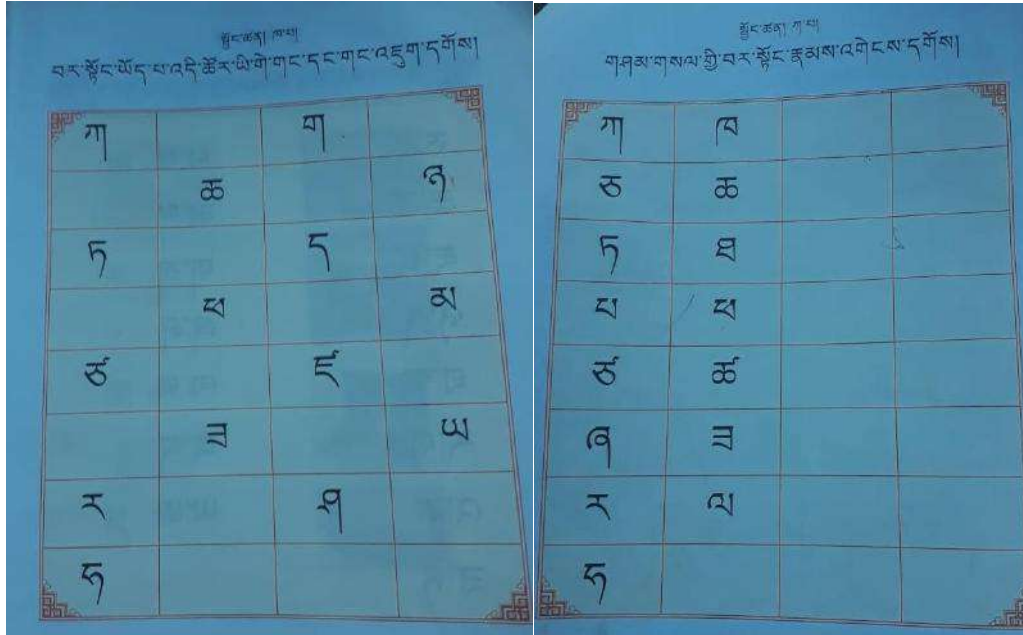 སྦྱོང་ཚན། ཀ་པ།
བར་སྟོང་ཡོད་པ་འདི་ཚོར་ཡི་གེ་གང་དང་གང་འཇུག་དགོས།
ཀ ག
ཆ ཉ
ཏ ད
ཕ མ
ཙ ཛ
ཟ ཡ
ར ཤ
ཧ
སྦྱོང་ཚན། ཀ་པ།
གཤམ་གསལ་གྱི་བར་སྟོང་རྣམས་འགེངས་དགོས།
ཀ ཁ
ཅ ཆ
ཏ ཐ
པ ཕ
ཙ ཚ
ཞ ཟ
ར ལ
ཧ